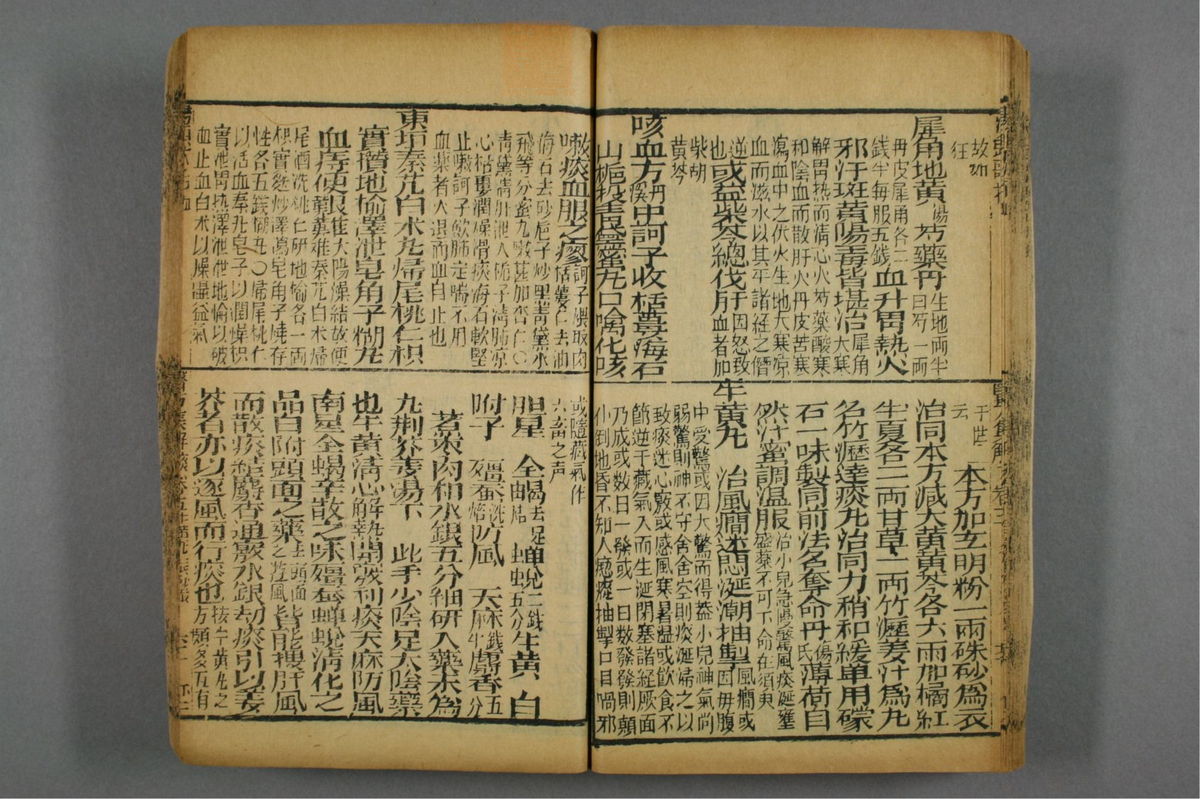 故如
狂
犀角地黄湯芍藥丹生地兩半白芍一兩
丹皮犀角各二錢半每服五錢血升胃熱火
邪汗斑黄陽毒皆堪治大寒犀角
解胃热而清心火芍藥酸寒
和陰血而散肝火丹皮苦寒
瀉血中之伏火生地大寒凉
血而滋水以其平諸經之僭
逆也或益柴芩總伐肝因怒致血者加
柴胡
黄芩
咳血方丹溪中訶子收栝蔞海石
山梔投青黛蜜丸口噙化咳
于世
云
本方加玄明粉一兩硃砂為衣
治同本方减大黄黄芩各六兩加橘紅
生夏各二兩甘草二兩竹瀝姜汁為丸
名竹瀝達痰丸治同力稍和緩單用礞
石一味製同前法名奪命丹薄荷自
然汁蜜調温服治小兒急慢驚風痰涎壅盛藥不可下命在須臾
牛黄丸 治風癇迷悶涎潮抽掣風癇或因母腹
中受驚或因大驚而得蓋小兒神氣尚
弱驚則神不守舍舍空則痰涎歸之以
致痰迷心竅或感風寒暑湿或飲食不
節逆于臓氣入而生涎閉塞諸經厥面
乃成或数日一發或一日数發發則顛
仆到地昏不知人瘛瘲抽掣口目喎邪
嗽痰血服之瘳訶子煨取肉栝蔞仁去油
海石去砂梔子炒黑青黛水
飛等分蜜丸嗽甚加杏仁〇
青黛清肝泄火梔子清肺凉
心栝蔞潤燥滑痰海石軟堅
止嗽訶子歛肺定喘不用
血藥者火退而血自止也
東垣秦艽白术丸歸尾桃仁枳
實攢地榆澤泄皂角子糊丸
血痔便艱難大腸燥結故便難秦艽白术歸
尾酒洗桃仁研地榆各一兩
枳實麩炒澤瀉皂角子燒存
性各五錢糊丸〇歸尾桃仁
以活血秦艽皂子以潤燥枳
實泄胃熱澤泄泄地榆以破
血止血白术以燥湿益氣
或隨臓氣作
六畜之声
胆星 全蝎去足焙 蝉蜕二錢五分 牛黄 白
附子 殭蚕洗焙 防風 天麻錢半 麝香五分
煮棗肉和水銀五分細研入藥末為
丸荆芥姜湯下 此手少陰足太陰藥
也牛黄清心解熱開竅利痰天麻防風
南星全蝎辛散之味殭蚕蝉蜕清化之
品白附頭面之藥皆能搜肝風
而散痰結麝香通竅水銀刼痰引以姜
芥者亦以逐風而行痰也按牛黄丸之方頗多互有